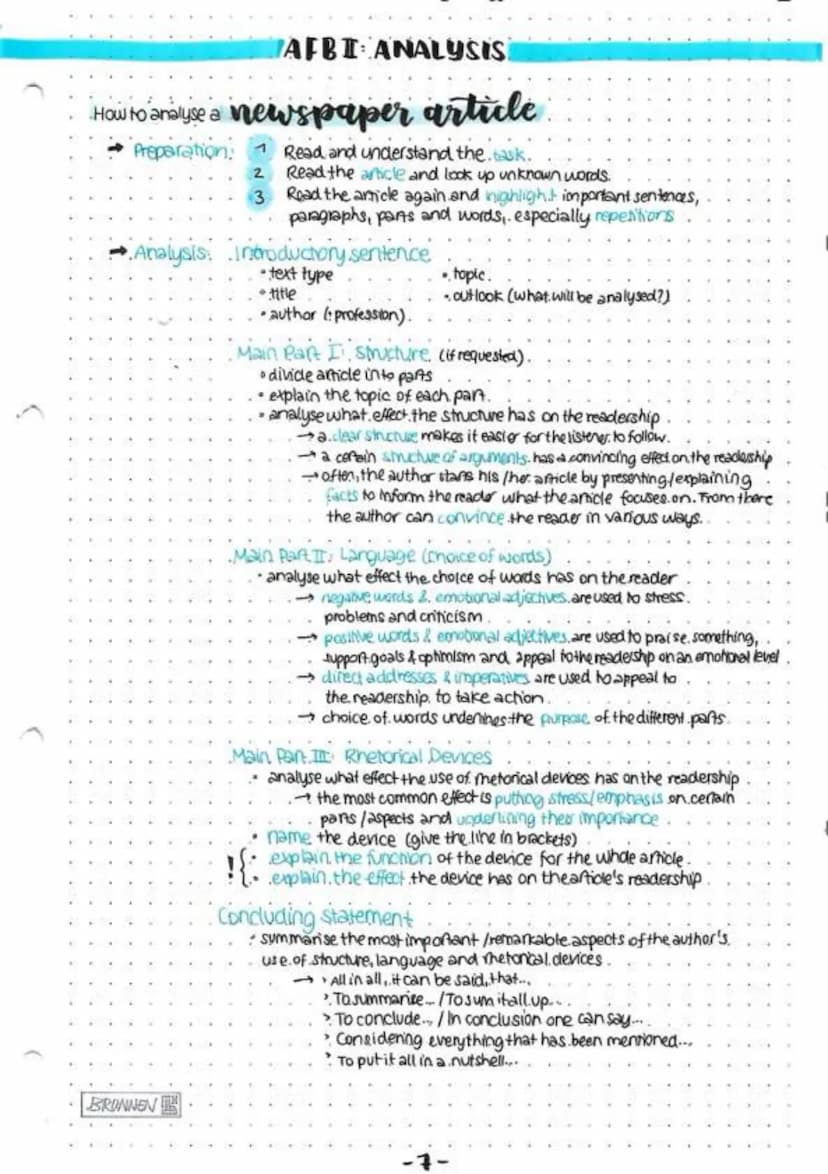 AFB II: ANALYSIS
How to analyse a newspaper article
→ Preparation: 1 Read and understand the task.
2 Read the article and look up unknown words.
3 Read the article again and highlight important sentences,
paragraphs, parts and words, especially repetitions
→ Analysis: Introductory sentence
• text type • topic
• title • outlook (what will be analysed?)
• author (+ profession)
Main Part I: Structure (if requested)
• divide article into parts
• explain the topic of each part
• analyse what effect the structure has on the readership
→ a clear structure makes it easier for the listener to follow
→ a certain structure of arguments has a convincing effect on the readership
→ often, the author starts his/her article by presenting/explaining
facts to inform the reader what the article focuses on. From there
the author can convince the reader in various ways.
Main Part II: Language (choice of words)
• analyse what effect the choice of words has on the reader
→ negative words & emotional adjectives are used to stress
problems and criticism
→ positive words & emotional adjectives are used to praise something,
support goals & optimism and appeal to the readership on an emotional level
→ direct addresses & imperatives are used to appeal to
the readership to take action
→ choice of words underlines the purpose of the different parts
Main Part III: Rhetorical Devices
• analyse what effect the use of rhetorical devices has on the readership
→ the most common effect is putting stress/emphasis on certain
parts/aspects and underlining their importance
• name the device (give the line in brackets)
! { • explain the function of the device for the whole article
• explain the effect the device has on the article's readership
Concluding statement
• summarise the most important/remarkable aspects of the author's
use of structure, language and rhetorical devices
→ > All in all, it can be said, that...
> To summarise... / To sum it all up...
> To conclude... / In conclusion one can say...
> Considering everything that has been mentioned...
> To put it all in a nutshell...
BRUNNEN
-7-